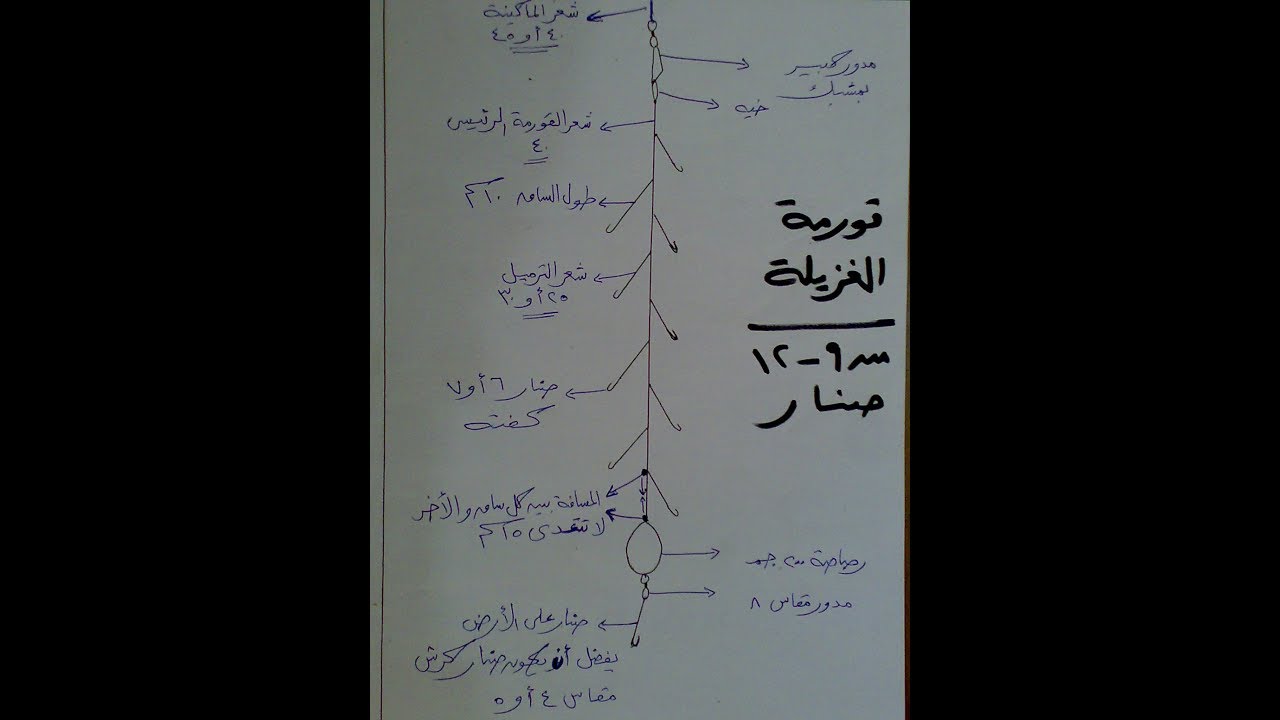 شعر الماكينة
٤٠ أو ٤٥
مدور كبير
بمشبك
خيه
شعر القورمة الرئيسى
٤٠
طول السامه ١٠ كم
قورمة
الغزيلة
شعر الترميل
٢٥ أو ٣٠
سه ٩ - ١٢
صنار
صنار ٦ أو ٧
كفته
المسافة بيه كل سامه والأخر
لا تتعدى ١٥ كم
رصاصة ٢٠٠ جم
مدور مقاس ٨
صنار على الأرض
يفضل أن يكونه صنار كرش
مقاس ٤ أو ٥